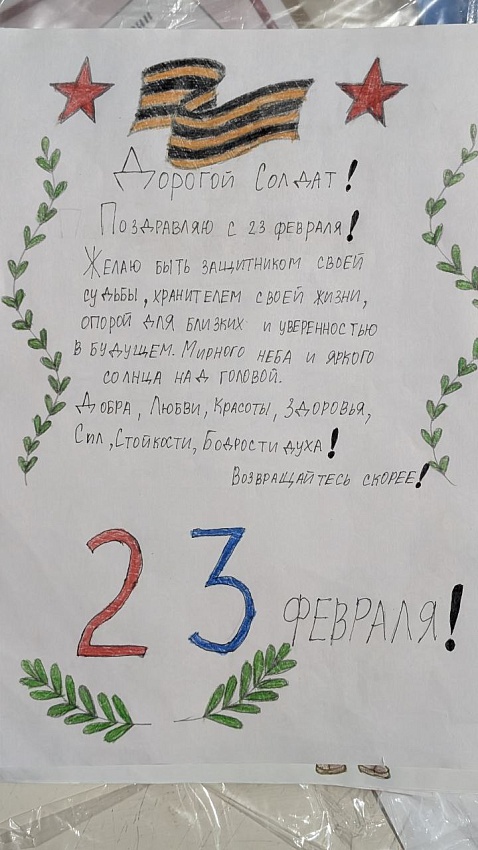 Дорогой Солдат!
Поздравляю с 23 февраля!
Желаю быть защитником своей
судьбы, хранителем своей жизни,
опорой для близких и уверенностью
в будущем. Мирного неба и яркого
солнца над головой.
Добра, Любви, Красоты, Здоровья,
Сил, Стойкости, Бодрости духа!
Возвращайтесь скорее!
23 ФЕВРАЛЯ!